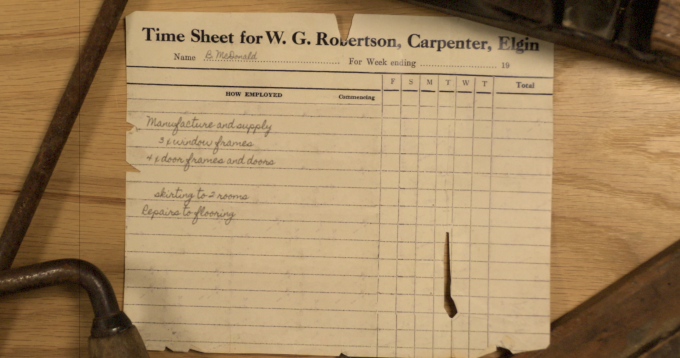 Time Sheet for W. G. Robertson, Carpenter, Elgin
Name B McDonald For Week ending 19
F S M T W T Total
HOW EMPLOYED Commencing
Manufacture and supply
3 x window frames
4 x door frames and doors
skirting to 2 rooms
Repairs to flooring